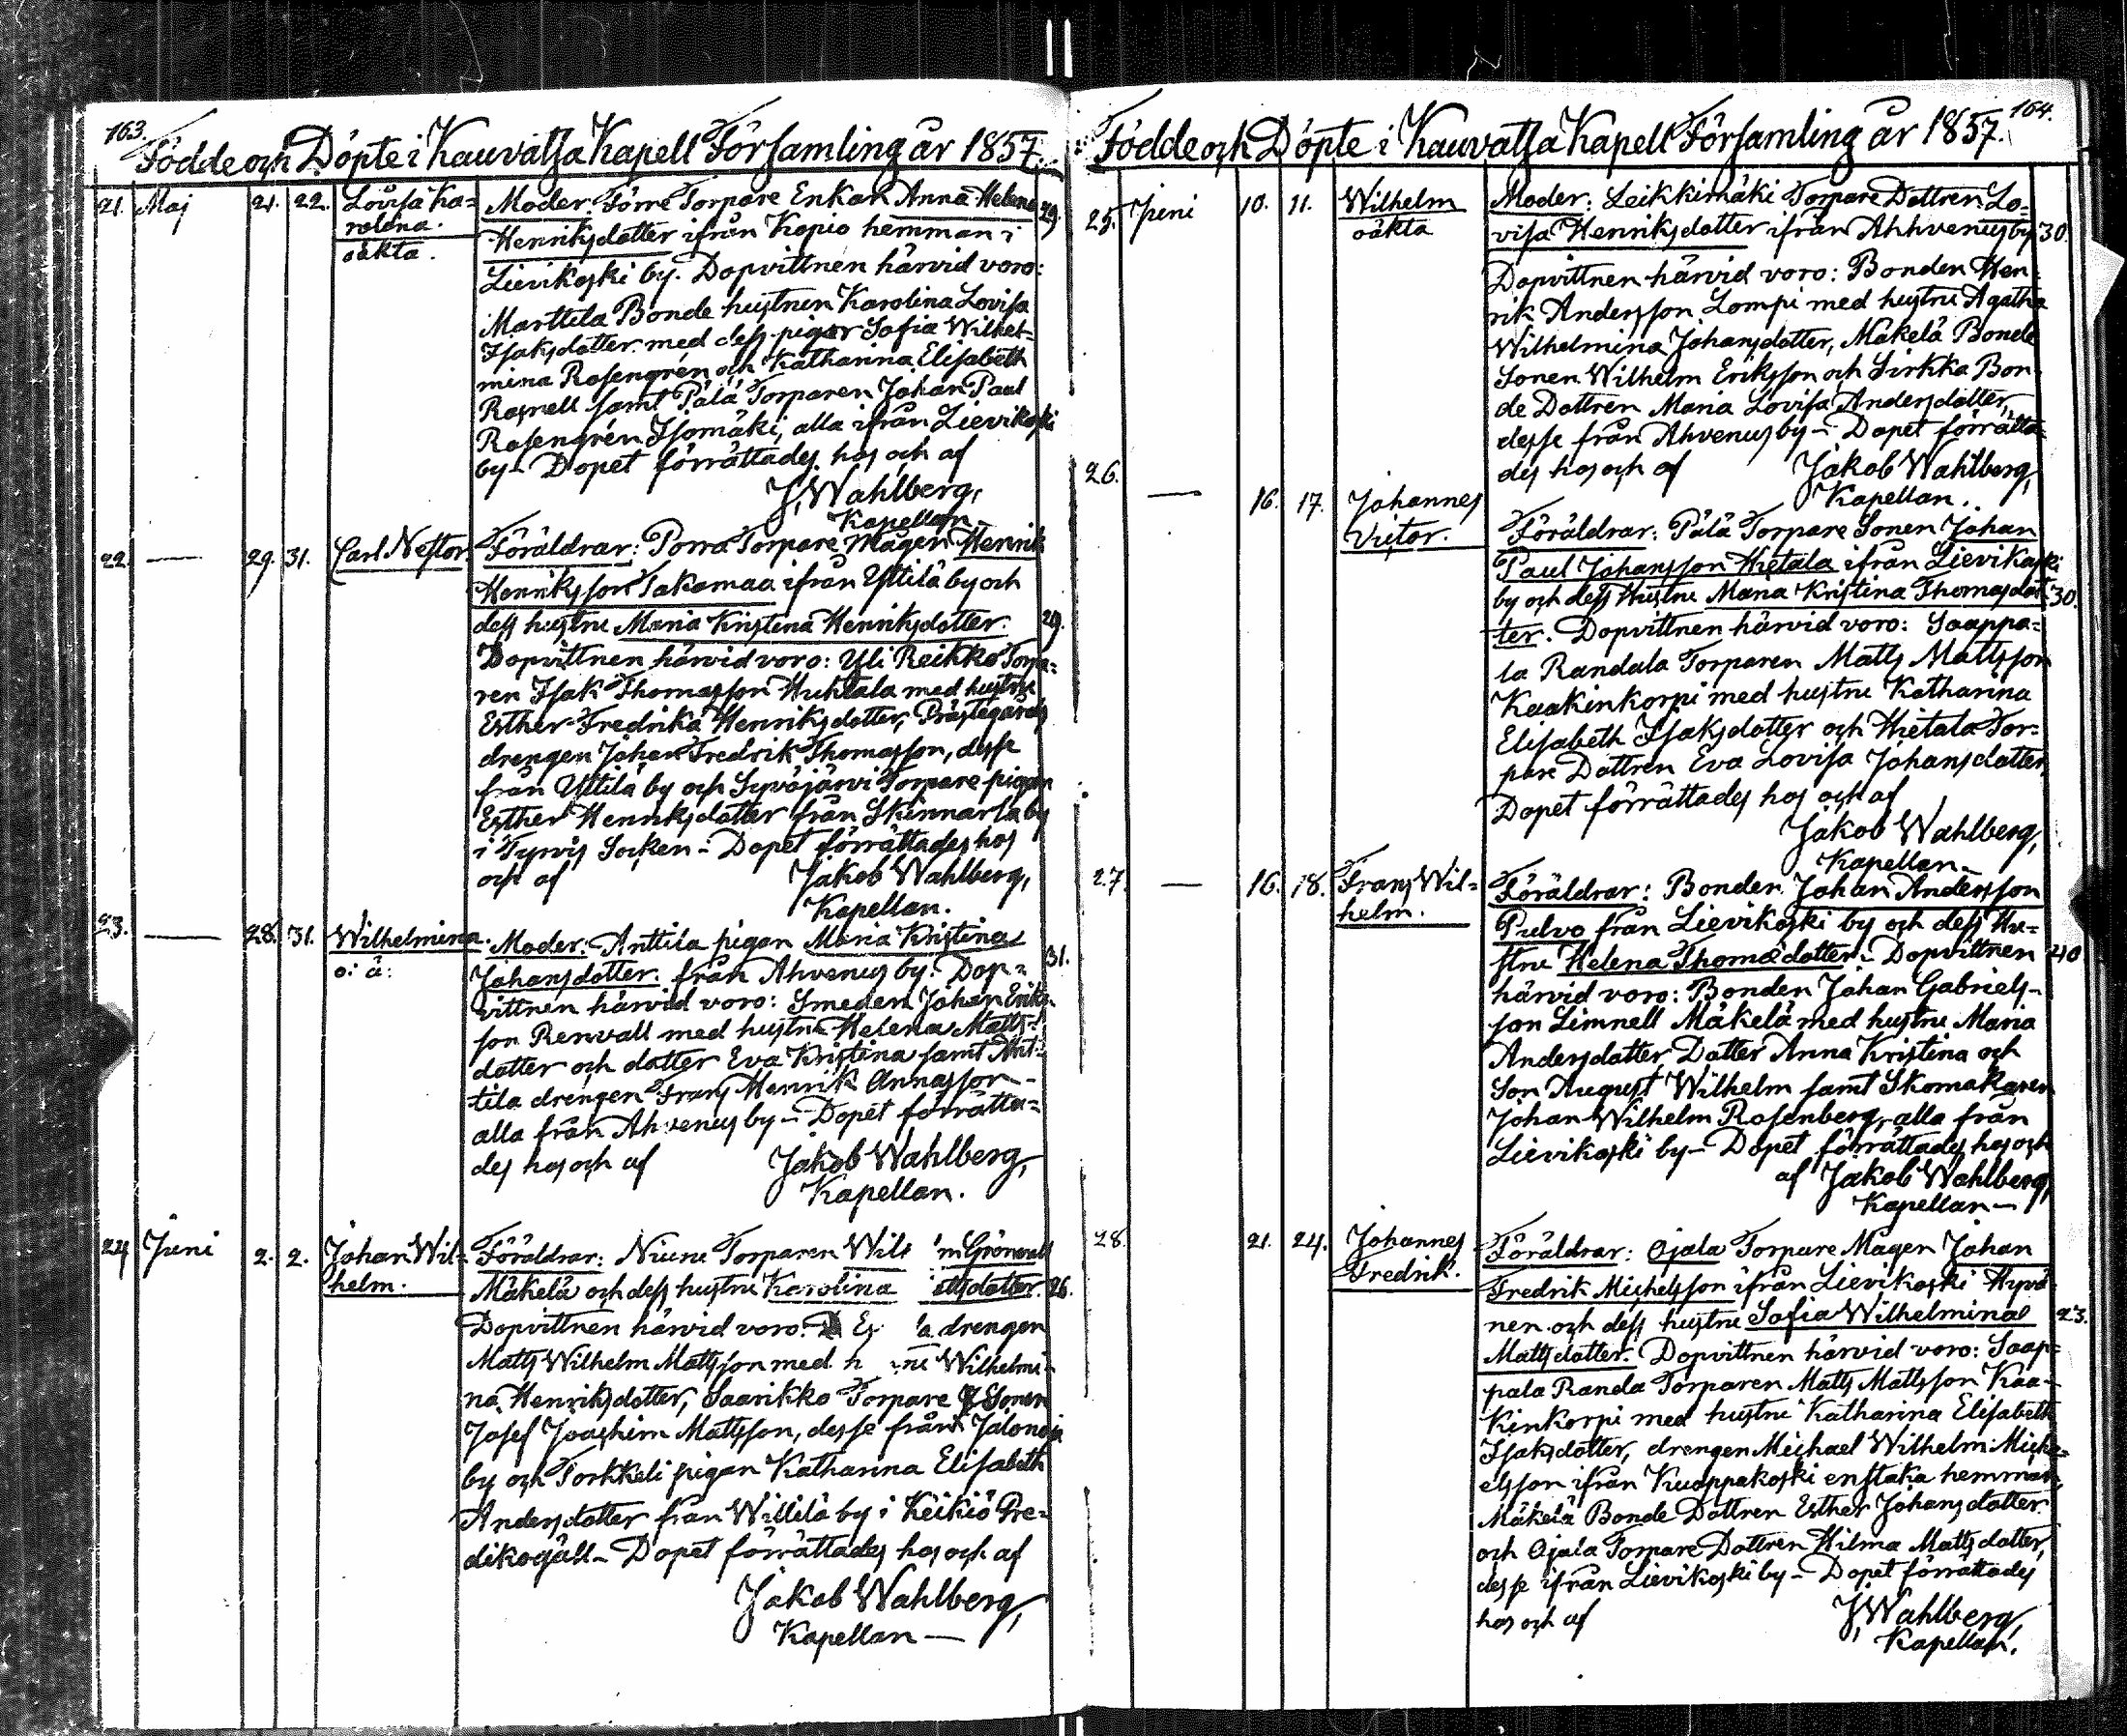 163.
Födde och Döpte i Kauvatsa Kapell Församling år 1857.
21. Maj 21. 22. Lovisa Ka=
rolina.
oäkta.
Moder: Förre Torpare Enkan Anna Helena 29.
Henriksdotter ifrån Kopio hemman i
Lievikoski by. Dopvittnen härvid voro:
Marttila Bonde hustrun Karolina Lovisa
Isaksdotter med dess pigor Sofia Wilhel=
mina Rosengrén och Katharina Elisabeth
Rosnell samt Pälä Torparen Johan Paul
Rosengrén Isomäki, alla ifrån Lievikoski
by – Dopet förrättades hos och af
J. Wahlberg,
Kapellan.
22. — 29. 31. Carl Nestor.
Föräldrar: Porra Torpare Mågen Henrik
Henriksson Takamaa ifrån Yttilä by och
dess hustru Maria Kristina Henriksdotter. 29.
Dopvittnen härvid voro: Yli Reikko Torpa=
ren Isak Thomasson Huhtala med hustru
Esther Fredrika Henriksdotter, Prästegårds
drengen Johan Fredrik Thomasson, desse
från Yttilä by och Syväjärvi Torpare pigan
Esther Henriksdotter från Skinnarla by
i Tyrvis Socken – Dopet förrättades hos
och af Jakob Wahlberg,
Kapellan.
23. — 28. 31. Wilhelmina.
o: ä:
Moder: Anttila pigan Maria Kristina 31.
Johansdotter. från Ahvenus by. Dop=
vittnen härvid voro: Smeden Johan Eriks=
son Renvall med hustru Helena Matts=
dotter och dotter Eva Kristina samt Ant=
tila drengen Frans Henrik Annasson –
alla från Ahvenus by – Dopet förrätta=
des hos och af Jakob Wahlberg,
Kapellan.
24 Juni 2. 2. Johan Wil=
helm.
Föräldrar: Niune Torparen Grönvall
Mäkelä och dess hustru Karolina 26.
Dopvittnen härvid voro. drengen
Matts Wilhelm Mattsson med Wilhelmi=
na Henriksdotter, Saarikko Torpare Sonen
Josef Joachim Mattsson, desse från Jalonoja
by och Torkkeli pigan Katharina Elisabeth
Andersdotter från Willilä by i Keikiö Pre=
dikogäll – Dopet förrättades hos och af
Jakob Wahlberg,
Kapellan —
164.
Födde och Döpte i Kauvatsa Kapell Församling år 1857.
25. Juni 10. 11. Wilhelm
oäkta
Moder: Leikkimäki Torpare Dottren Lo=
visa Henriksdotter ifrån Ahhvenus by 30.
Dopvittnen härvid voro: Bonden Hen=
rik Andersson Lompi med hustru Agatha
Wilhelmina Johansdotter, Mäkelä Bonde
Sonen Wilhelm Eriksson och Sirkka Bon=
de Dottren Maria Lovisa Andersdotter,
desse från Ahvenus by – Dopet förrätta=
des hos och af Jakob Wahlberg,
Kapellan.
26. — 16. 17. Johannes
Victor.
Föräldrar: Pälä Torpare Sonen Johan
Paul Johansson Hietala ifrån Lievikoski
by och dess Hustru Maria Kristina Thomasdot= 30.
ter. Dopvittnen härvid voro: Saappa=
la Randala Torparen Matts Mattsson
Kaakinkorpi med hustru Katharina
Elisabeth Isaksdotter och Hietala Tor=
pare Dottren Eva Lovisa Johansdotter,
Dopet förrättades hos och af
Jakob Wahlberg,
Kapellan –
27. — 16. 18. Frans Wil=
helm.
Föräldrar: Bonden Johan Andersson
Pulvo från Lievikoski by och dess Hu=
stru Helena Thomædotter – Dopvittnen 40
härvid voro: Bonden Johan Gabriels=
son Limnell Mäkelä med hustru Maria
Andersdotter Dotter Anna Kristina och
Son August Wilhelm samt Skomakaren
Johan Wilhelm Rosenberg, alla från
Lievikoski by – Dopet förrättades hos och
af Jakob Wahlberg,
Kapellan —
28. 21. 24. Johannes
Fredrik.
Föräldrar: Ojala Torpare Mågen Johan
Fredrik Michelsson ifrån Lievikoski Hyvö=
nen och dess hustru Sofia Wilhelmina 23.
Mattsdotter. Dopvittnen härvid voro: Saap=
pala Randa Torparen Matts Mattsson Kaa=
kinkorpi med hustru Katharina Elisabeth
Isaksdotter, drengen Michael Wilhelm Micha=
elsson ifrån Kuoppakoski enstaka hemman,
Mäkelä Bonde Dottren Esther Johansdotter
och Ojala Torpare Dottren Hilma Mattsdotter,
desse ifrån Lievikoski by – Dopet förrättades
hos och af J. Wahlberg,
Kapellan.